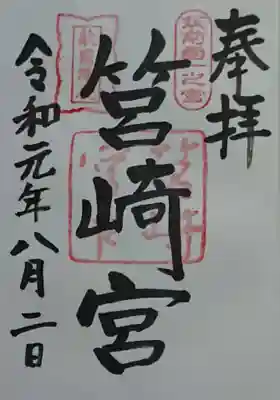 奉拝
筑前國一之宮
筥崎宮
令和元年八月二日